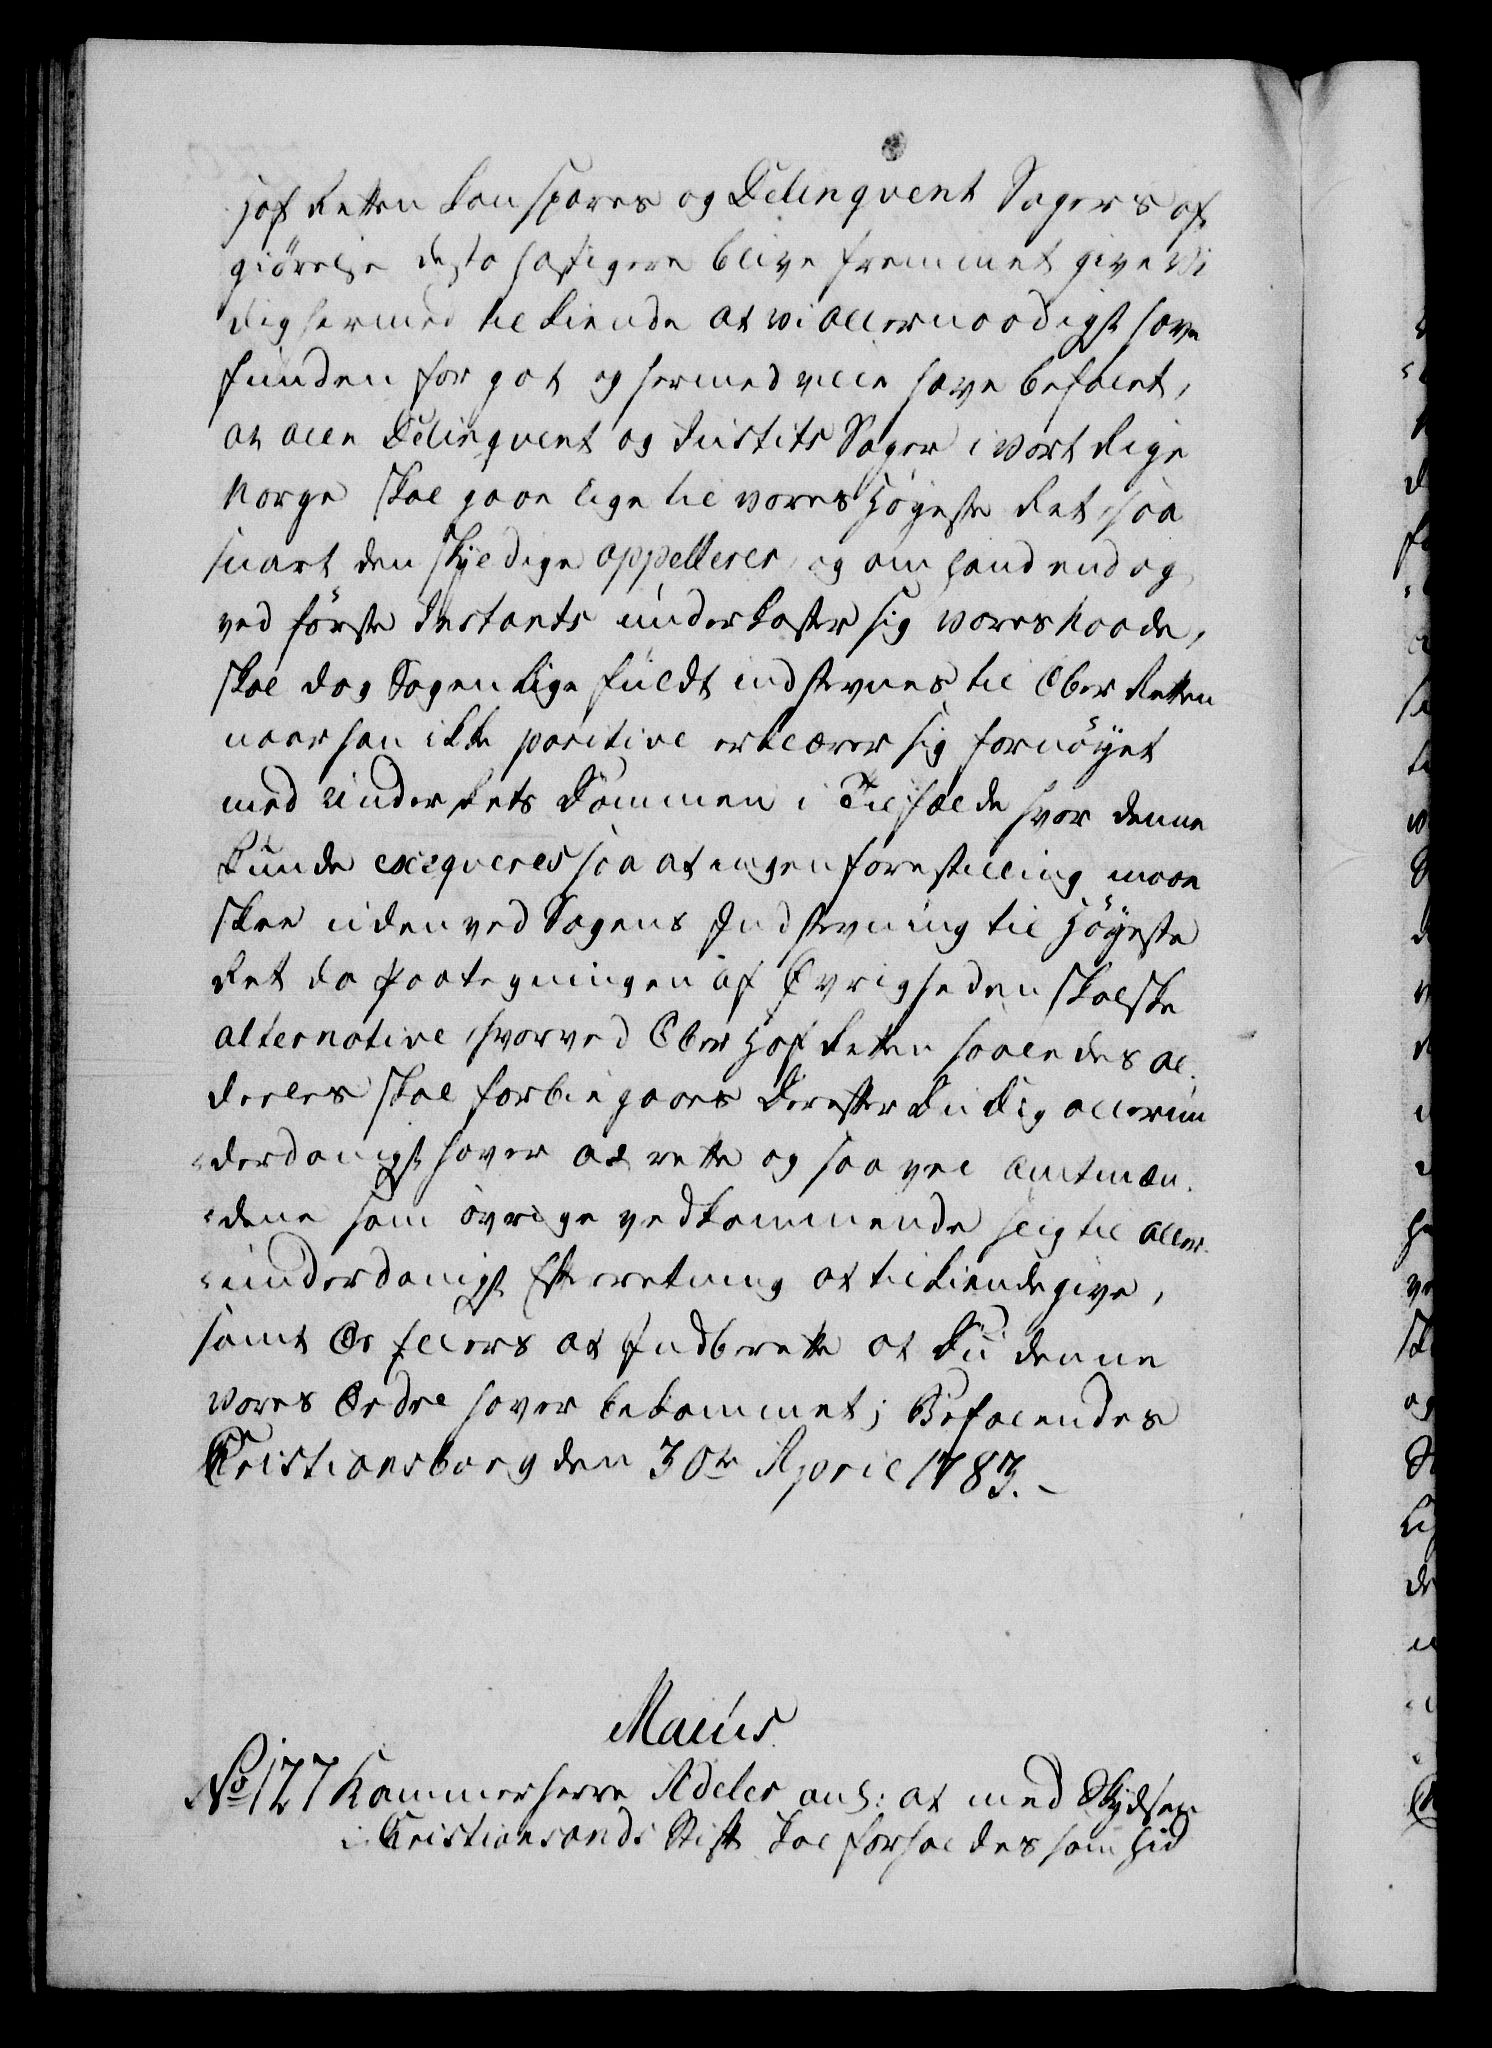 Hof Retten kan spares og Delinqvent Sagers af
giörelse desto hastigere blive fremmet give Vi
dig hermed til kiende at vi allernaadigst have
funden for got og hermed ville have befalet,
at alle Delinqvent og Justits Sager i vort Rige
Norge skal gaae lige til vores Höyeste Ret, saa
snart den skyldige appellerer, og om hand endog
ved förste Instants underkaster sig vores Naade,
skal dog Sagen lige fuldt indstevnes til Ober Retten
naar han ikke positive erklærer sig fornöyet
med Under Rets Dommen i Tilfælde hvor denne
kunde exeqveres saa at ingen forestilling maae
skee uden ved Sagens Indstevning til Höyeste
Ret da Paategningen af Övrigheden skal skee
alternative, hvorved Ober Hof Retten saaledes al-
deeles skal forbiegaaes Derefter Du Dig allerun
derdanigst haver at rette og saavel Amtmæn-
dene som övrige vedkommende sligt til aller-
underdanigst Efterretning at tilkiendegive,
samt Os ellers at Indberette at Du denne
vores Ordre haver bekommet; Befalendes
Cristiansborg den 30te April 1783.-
Maius.
No 127 Kammerherre Adeler anl: at med Skydsen
i Cristiansands Stift skal forholdes som hid